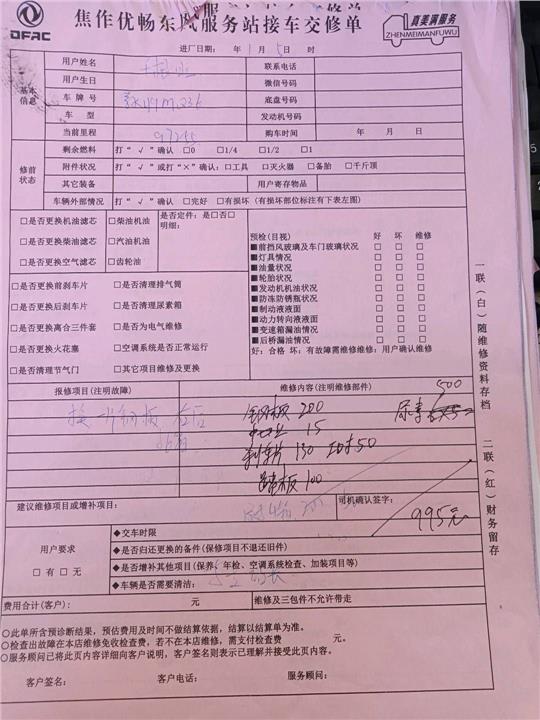 DFAC
焦作优畅东风服务站接车交修单
真美满服务
ZHENMEIMANFUWU
进厂日期： 年 1 月 5 日 时
基本信息
用户姓名 联系电话
用户生日 微信号码
车 牌 号 底盘号码
车 型 发动机号码
当前里程 97255 购车时间 年 月 日
修前状态
剩余燃料 打“√”确认 □0 □1/4 □1/2 □1
附件状况 打“√”或打“×”确认：□工具 □灭火器 □备胎 □千斤顶
其它装备 用户寄存物品
车辆外部情况 打“√”确认 □完好 □有损坏（有损坏部位标注有下表左图）
□是否更换机油滤芯 □柴油机油 是否定件：是□否□
明细：
□是否更换柴油滤芯 □汽油机油
□是否更换空气滤芯 □齿轮油
预检(目视) 好 坏 维修
■前挡风玻璃及车门玻璃状况 □ □ □
■灯具情况 □ □ □
■油量状况 □ □ □
■轮胎状况 □ □ □
■发动机机油状况 □ □ □
■防冻防锈瓶状况 □ □ □
■制动液液面 □ □ □
■动力转向液液面 □ □ □
■变速箱漏油情况 □ □ □
■后桥漏油情况 □ □ □
好：合格 坏：有故障需维修维修：用户确认维修
□是否更换前刹车片 □是否清理排气筒
□是否更换后刹车片 □是否清理尿素箱
□是否更换离合三件套 □是否为电气维修
□是否更换火花塞 □空调系统是否正常运行
□是否清理节气门 □其它项目维修及更换
报修项目(注明故障) 维修内容(注明维修部件)
500
换 钢板 左后
钢板 200
尿素
15
刹车片 130 工时50
踏板 100
建议维修项目或增补项目：
司机确认签字：
995元
用户要求
□ 有 □ 无
◆交车时限
◆是否归还更换的备件(保修项目不退还旧件)
◆是否增补其他项目(保养、年检、空调系统检查、加装项目等)
◆车辆是否需要清洁：
费用合计(客户)： 元 维修及三包件不允许带走
○此单所含预诊断结果，预估费用及时间不做结算依据，结算以结算单为准。
○检查出故障在本店维修免收检查费，若不在本店维修，需支付检查费 元。
○服务顾问已将此页内容详细向客户说明，客户签名则表示已理解并接受此页内容。
客户签名： 客户电话： 服务顾问：
一联（白）随维修资料存档
二联（红）财务留存